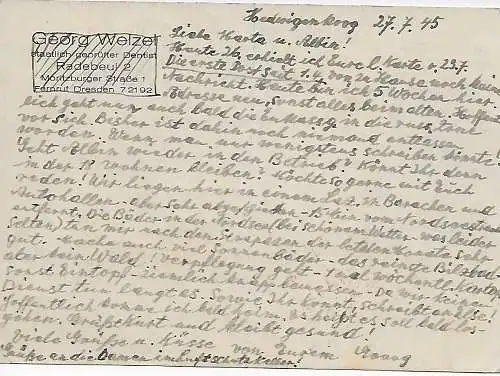 Hedwigenkoog 27.7.45
Georg Welzel
staatlich geprüfter Dentist
Radebeul 2
Moritzburger Straße 1
Fernruf Dresden 72192
Liebe Herta u. Albin!
Heute 26. erhielt ich Eure l. Karte v. 23.7.
Die erste Post seit 1.4. von zu Hause noch keine
Nachricht. Heute bin ich 5 Wochen hier,
Adresse neu, sonst alles beim alten. Hoffent-
lich geht nun auch bald die Entlassg in die russ. Zone
vor sich. Bisher ist dahin noch niemand entlassen
worden. Wenn man nur wenigstens schreiben könnte!
Geht Albin wieder in den Betrieb? Könnt Ihr denn
in der wohnen bleiben? Möchte so gerne mit Euch
reden! Wir liegen hier in einem Laz. in Baracken und
Autohallen - aber sehr - vom Nordseestrand
entfernt. Die Bäder in der Nordsee bei schönem Wetter - was leider
selten) tun mir nach den Strapazen der letzten Monate sehr
gut. Mache auch viel Sonnenbäder - das reinste Bilzbad
aber kein Wald! Verpflegung geht - 1 mal wöchentl. Kartoffeln
sonst Eintopf - ziemlich knapp bemessen - da wir keinen
Dienst tun langt es. Sowie Ihr könnt, schreibt an alle!
Hoffentlich komme ich bald heim. Es heißt es soll bald los-
gehen. und bleibt gesund!
Viele Grüße u. Küsse von Eurem Georg
Grüße an die Damen im Luftschutzkeller!